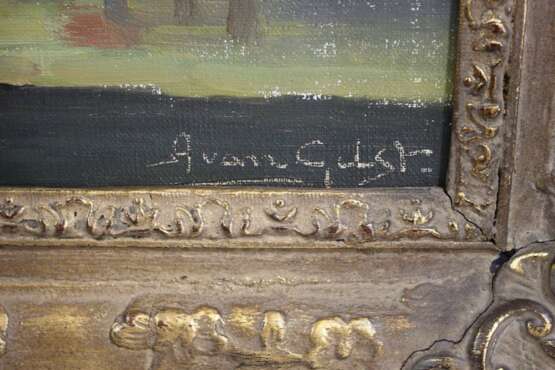 A van Gulst